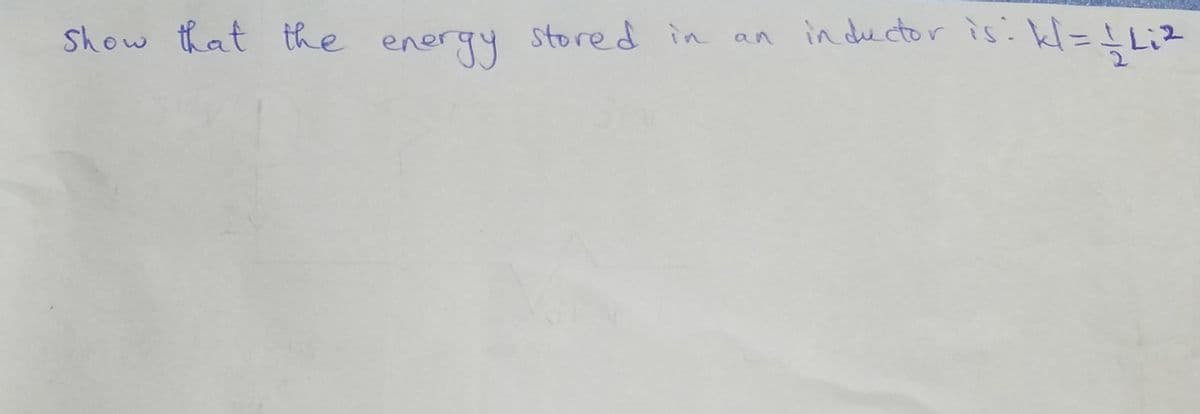 Show that the energy stored in an inductor is: W = 1/2 Li²